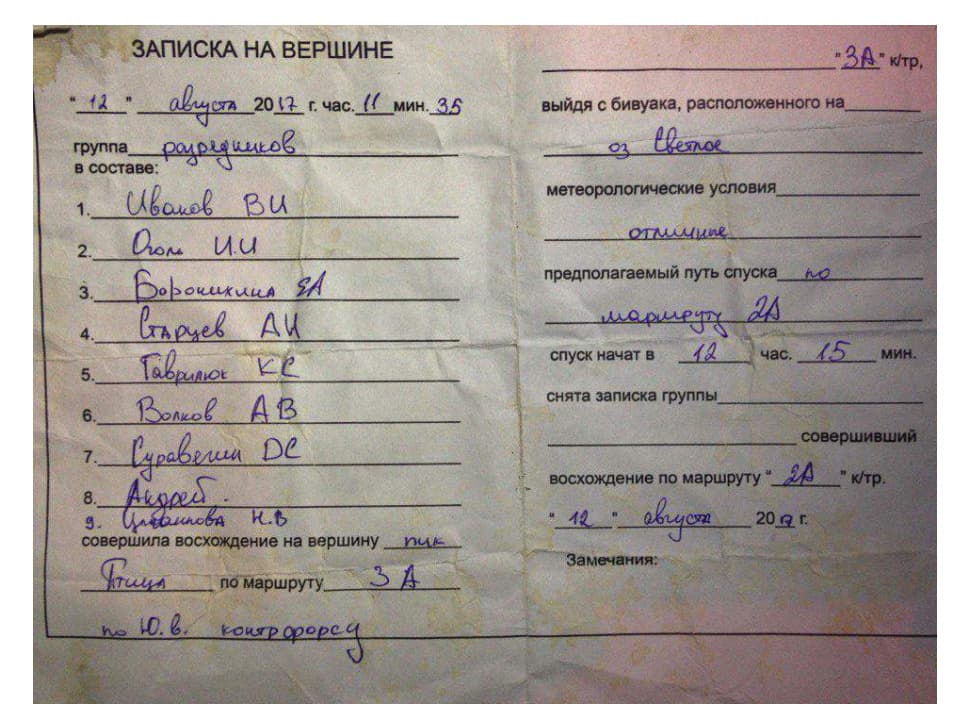 ЗАПИСКА НА ВЕРШИНЕ
"12" августа 2017 г. час. 11 мин. 35
группа разрядников
в составе:
1. Иванов ВИ
2. И.И
3. Воронихина ЯА
4. Старцев АИ
5. Гаврилюк КС
6. Волков АВ
7. ДС
8. Андрей.
9. Н.В
совершила восхождение на вершину пик
Птица по маршруту 3А
по Ю.В. контрфорсу
"3А" к/тр,
выйдя с бивуака, расположенного на
оз Светлое
метеорологические условия
отличные
предполагаемый путь спуска по
маршруту 2А
спуск начат в 12 час. 15 мин.
снята записка группы
совершивший
восхождение по маршруту "2А" к/тр.
"12" августа 2017 г.
Замечания: